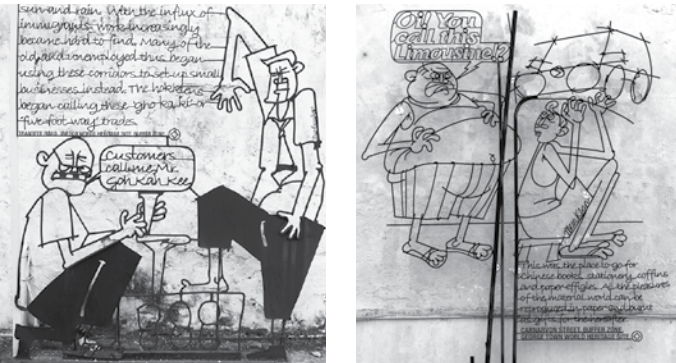 sun and rain. With the influx of
immigrants, work increasingly
became hard to find. Many of the
old and unemployed thus began
using these corridors to set up small
businesses instead. The hokkiens
began calling these 'gho ka ki' or
five foot way trades.
Customers
call me Mr.
Goh Kah Kee
Oi! You
call this
Limousine!?
This was the place to go for
Chinese books, stationery, coffins
and paper effigies. All the pleasures
of the material world can be
reproduced in paper and burnt
as gifts for the
CARNARVON STREET, BUFFER ZONE,
GEORGE TOWN WORLD HERITAGE SITE